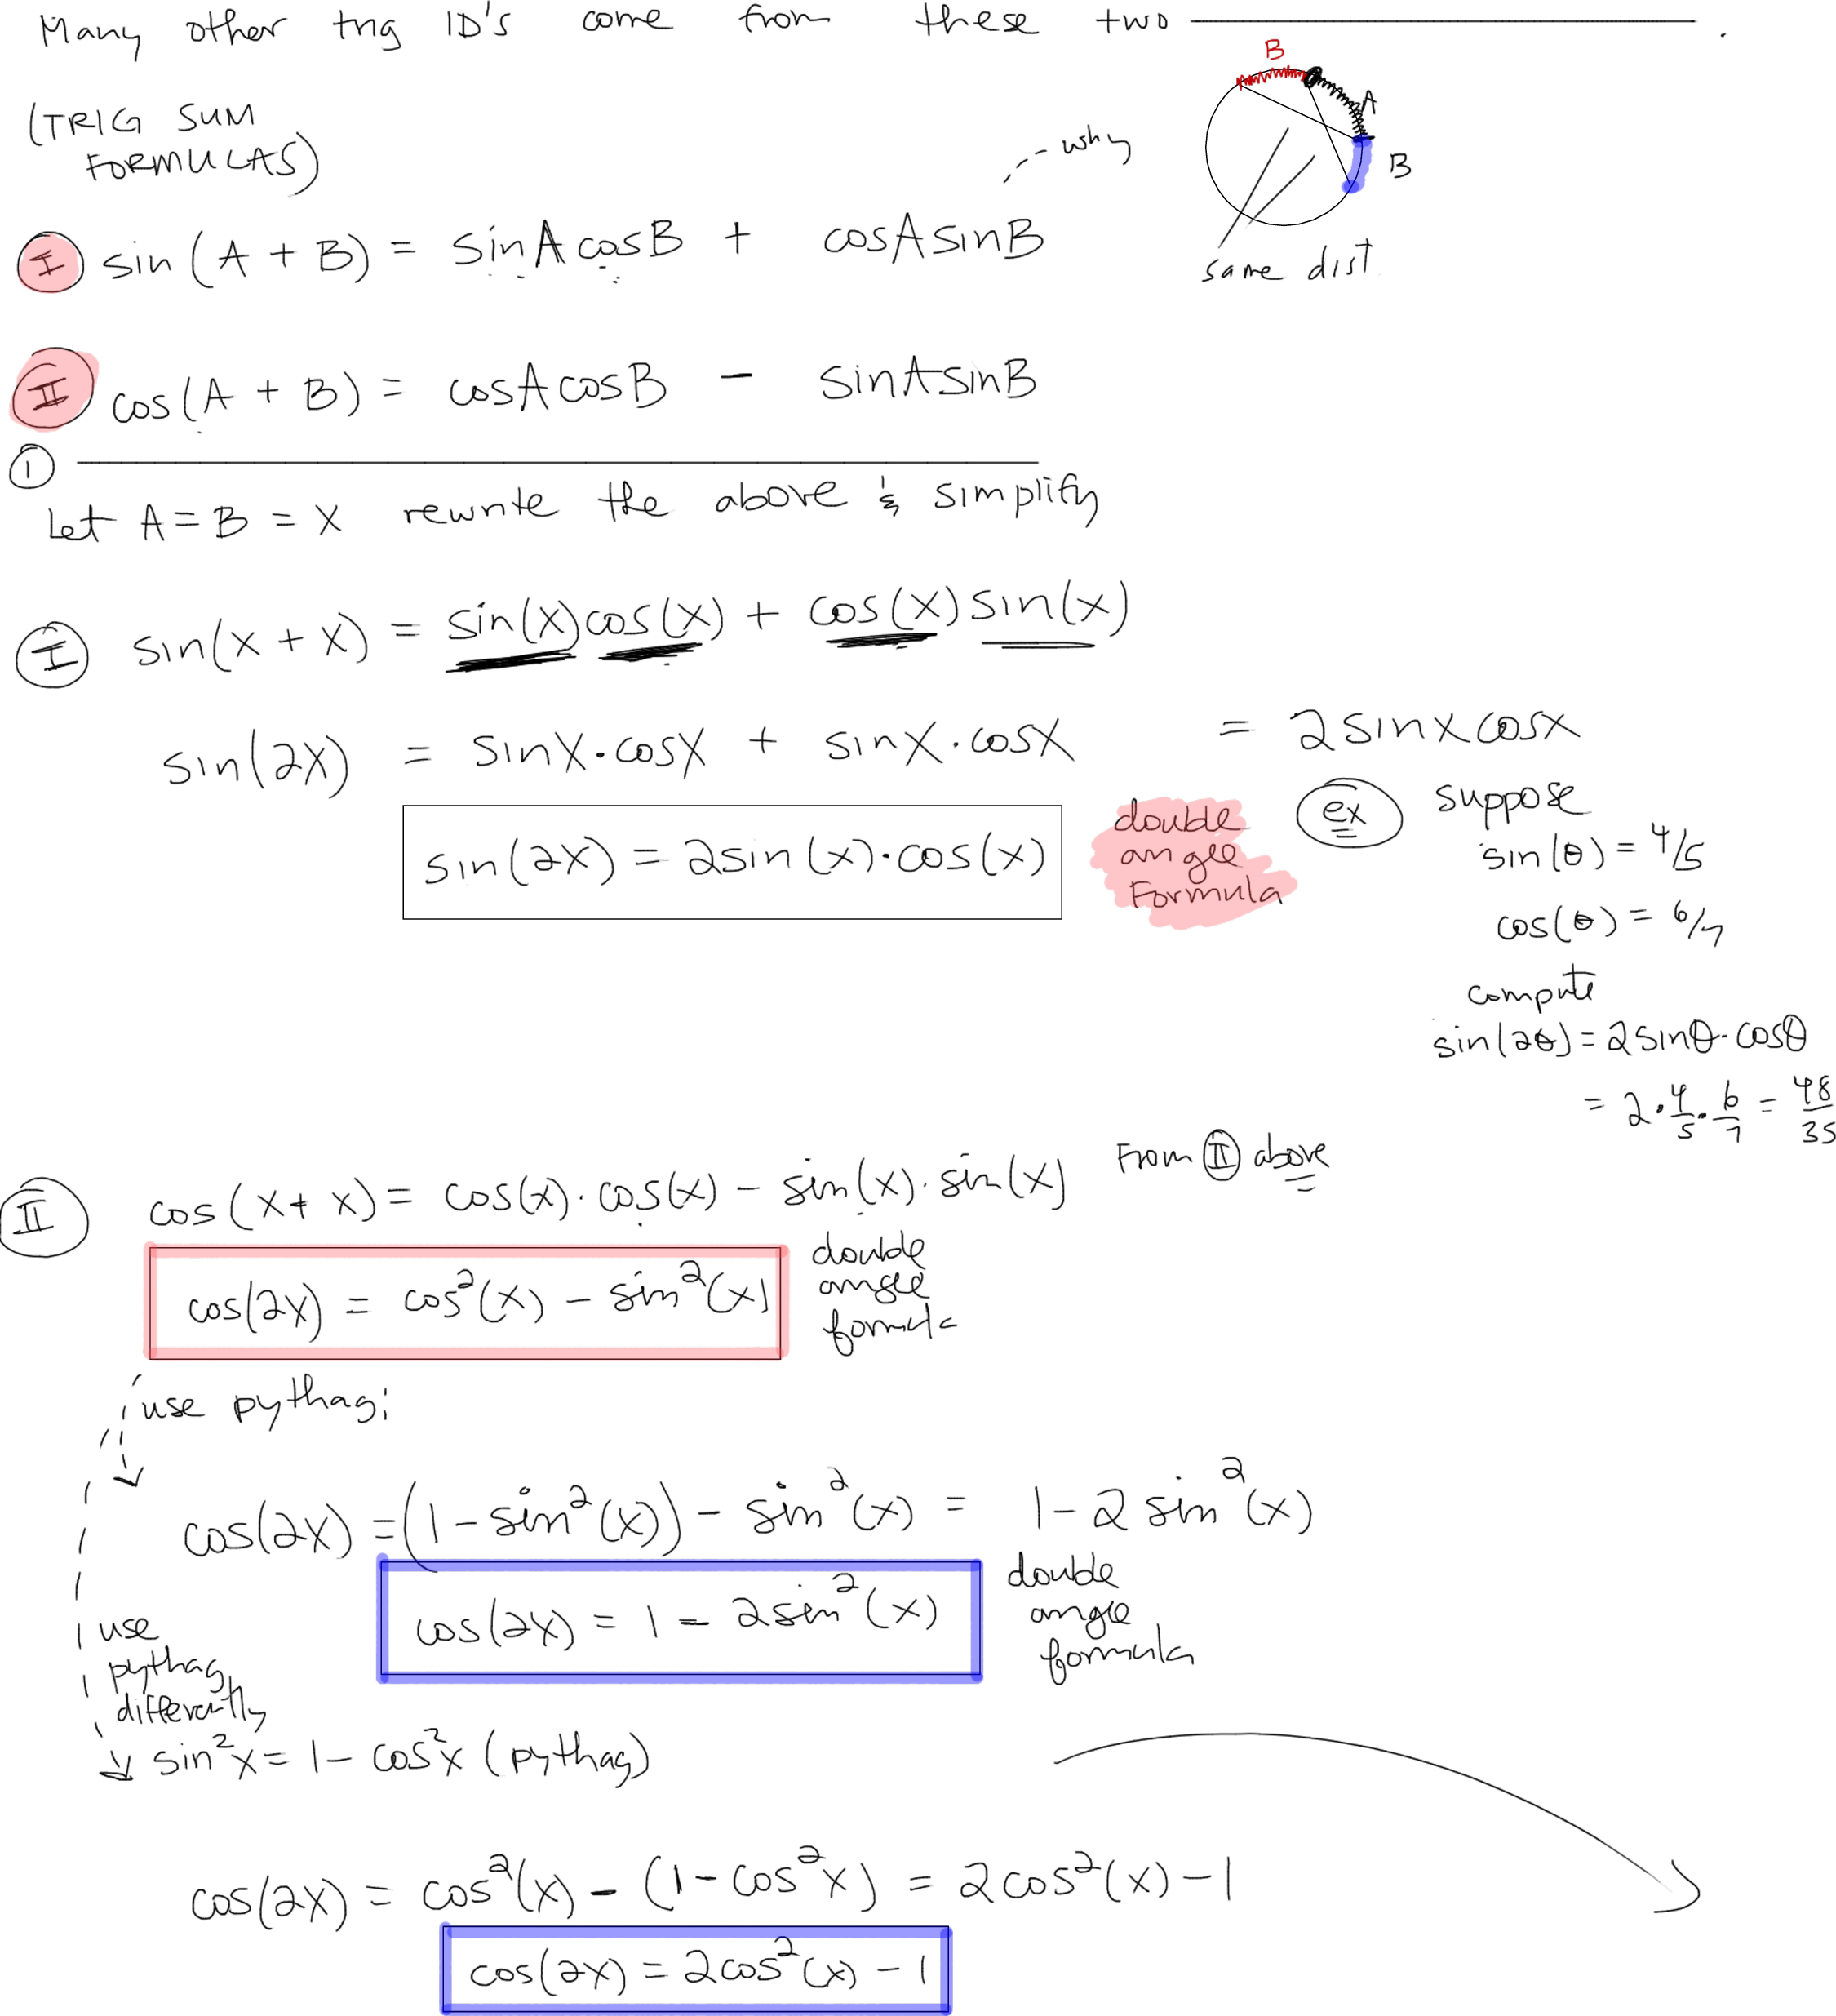 Many other trig ID's come from these two .
(TRIG SUM
FORMULAS)
B
A
B
why
same dist
I sin(A + B) = sinA cosB + cosAsinB
II cos(A + B) = cosAcosB - sinAsinB
1
Let A = B = X rewrite the above & simplify
I sin(x + x) = sin(x)cos(x) + cos(x)sin(x)
sin(2x) = sinx·cosx + sinx·cosx = 2sinxcosx
sin(2x) = 2sin(x)·cos(x)
double
angle
Formula
ex suppose
sin(θ) = 4/5
cos(θ) = 6/7
compute
sin(2θ) = 2sinθ·cosθ
= 2·4/5·6/7 = 48/35
II cos(x + x) = cos(x)·cos(x) - sin(x)·sin(x) From II above
cos(2x) = cos²(x) - sin²(x)
double
angle
formula
use pythag:
cos(2x) = (1 - sin²(x)) - sin²(x) = 1 - 2sin²(x)
cos(2x) = 1 - 2sin²(x)
double
angle
formula
use
pythag
differently
sin²x = 1 - cos²x (pythag)
cos(2x) = cos²(x) - (1 - cos²x) = 2cos²(x) - 1
cos(2x) = 2cos²(x) - 1